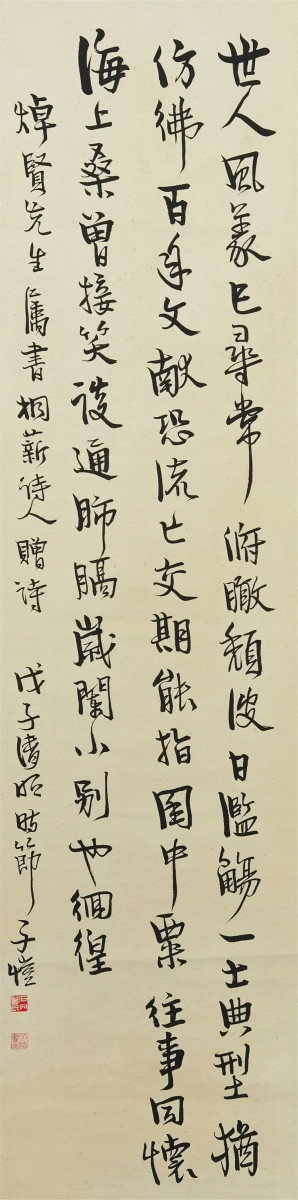 世人風義已尋常俯瞰頹波日濫觴一士典型猶
仿彿百年文獻恐流亡交期能指囷中粟往事回懷
海上桑曾接笑談通肺膈歲闌小别也徊徨
焯賢先生屬書桐薪詩人贈詩 戊子清明時節 子愷